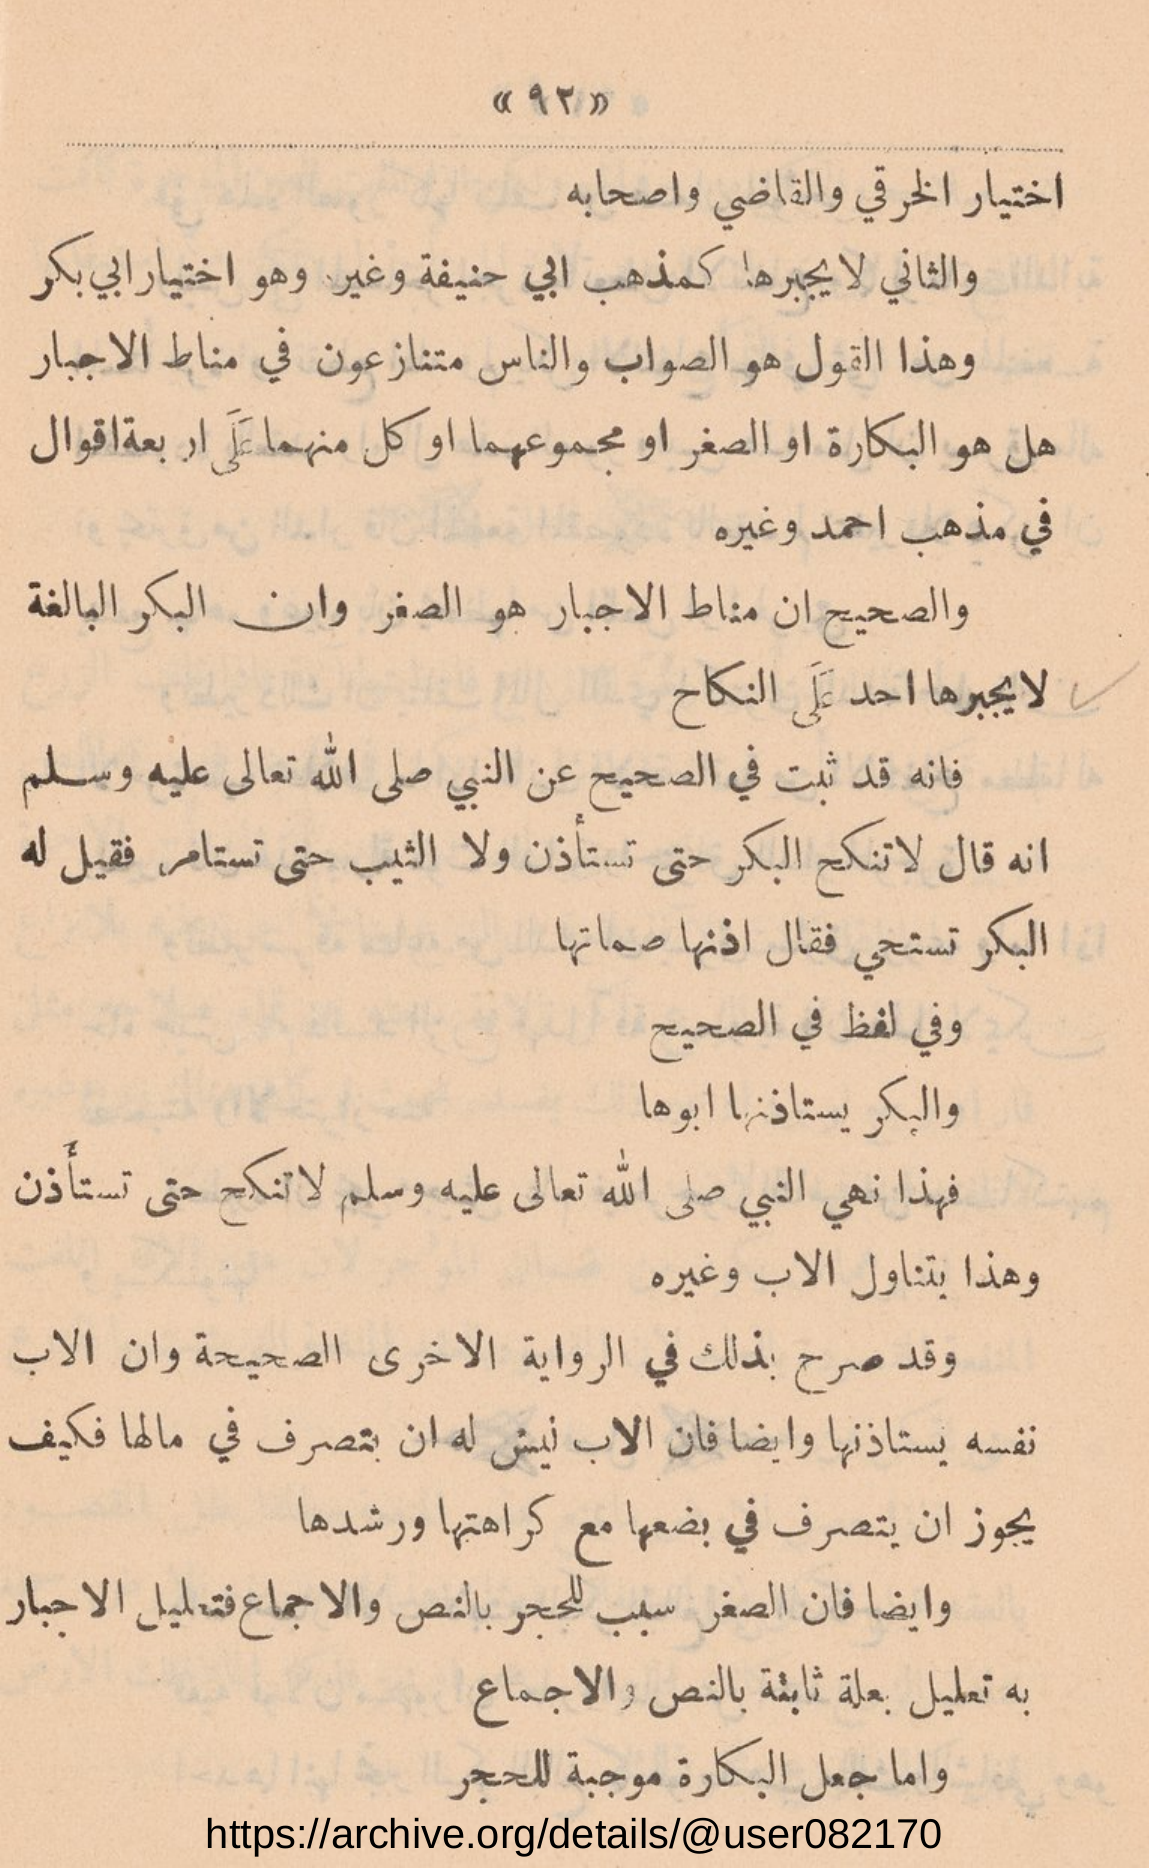 «٩٢»
اختيار الخرقي والقاضي واصحابه
والثاني لا يجبرها كمذهب ابي حنيفة وغير. وهو اختيار ابي بكر
وهذا القول هو الصواب والناس متنازعون في مناط الاجبار
هل هو البكارة او الصغر او مجموعهما او كل منهما عَلَى اربعة اقوال
في مذهب احمد وغيره
والصحيح ان مناط الاجبار هو الصغر وان البكر البالغة
لا يجبرها احد عَلَى النكاح
فانه قد ثبت في الصحيح عن النبي صلى الله تعالى عليه وسلم
انه قال لا تنكح البكر حتى تستأذن ولا الثيب حتى تستامر فقيل له
البكر تستحي فقال اذنها صماتها
وفي لفظ في الصحيح
والبكر يستاذنها ابوها
فهذا نهي النبي صلى الله تعالى عليه وسلم لا تنكح حتى تستأذن
وهذا يتناول الاب وغيره
وقد صرح بذلك في الرواية الاخرى الصحيحة وان الاب
نفسه يستاذنها وايضا فان الاب ليس له ان يتصرف في مالها فكيف
يجوز ان يتصرف في بضعها مع كراهتها ورشدها
وايضا فان الصغر سبب للحجر بالنص والاجماع فتعليل الاجبار
به تعليل بعلة ثابتة بالنص والاجماع
واما جعل البكارة موجبة للحجر
https://archive.org/details/@user082170